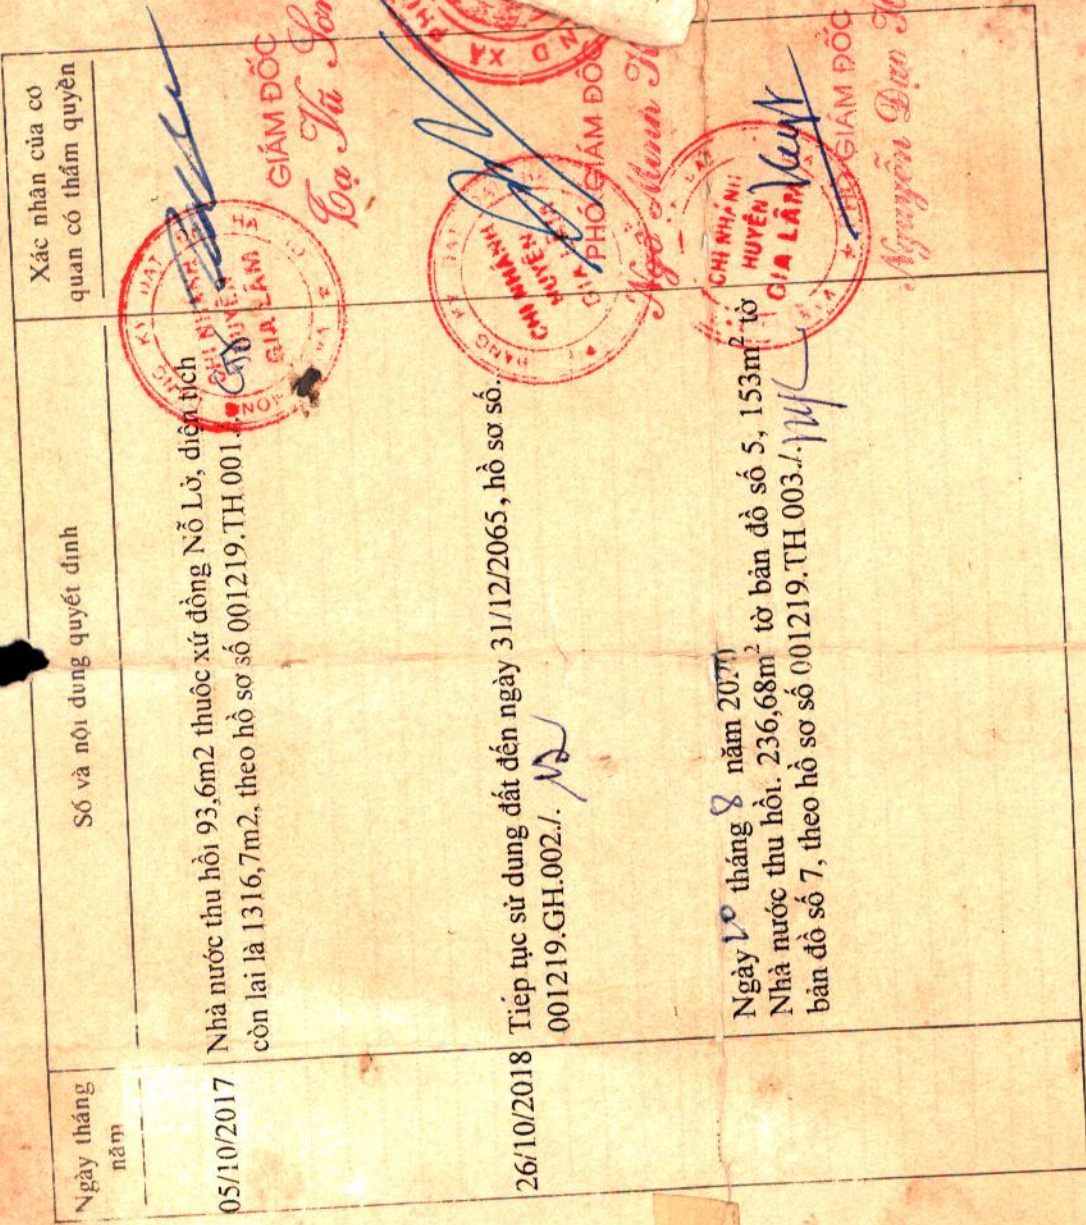 Ngày tháng
năm
Số và nội dung quyết định
Xác nhận của cơ
quan có thẩm quyền
05/10/2017
Nhà nước thu hồi 93,6m2 thuộc xứ đồng Nỗ Lở, diện tích
còn lại là 1316,7m2, theo hồ sơ số 001219.TH.001./.
CHI NHÁNH
HUYỆN
GIA LÂM
GIÁM ĐỐC
Tạ Vũ Sơn
26/10/2018
Tiếp tục sử dụng đất đến ngày 31/12/2065, hồ sơ số.
001219.GH.002./.
CHI NHÁNH
HUYỆN
GIA LÂM
PHÓ GIÁM ĐỐC
Ngô Minh
Ngày 20 tháng 8 năm 2020
Nhà nước thu hồi. 236,68m² tờ bản đồ số 5, 153m² tờ
bản đồ số 7, theo hồ sơ số 001219.TH.003./.
CHI NHÁNH
HUYỆN
GIA LÂM
GIÁM ĐỐC
Nguyễn Đạo